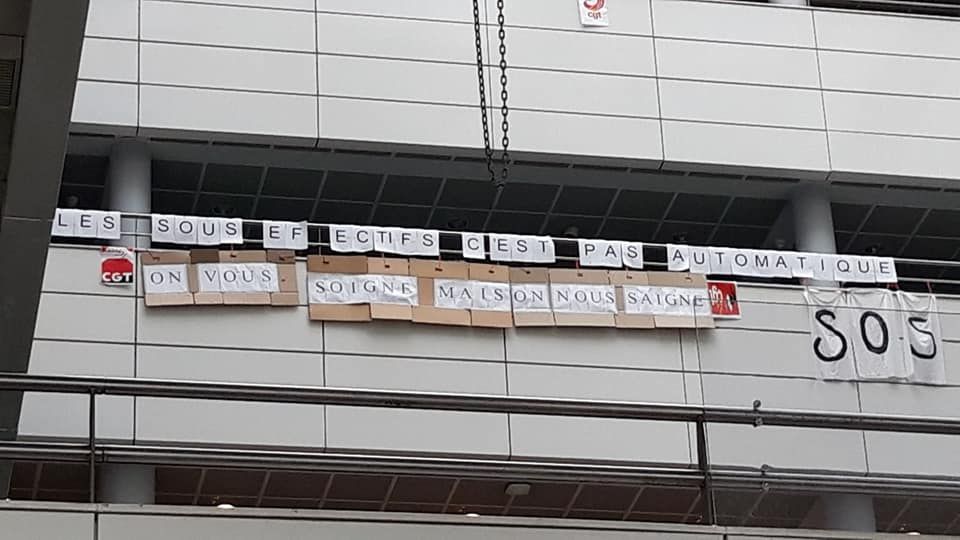 cgt
LES SOUS EFFECTIFS C'EST PAS AUTOMATIQUE
CGT
ON VOUS SOIGNE MAIS ON NOUS SAIGNE
SOS